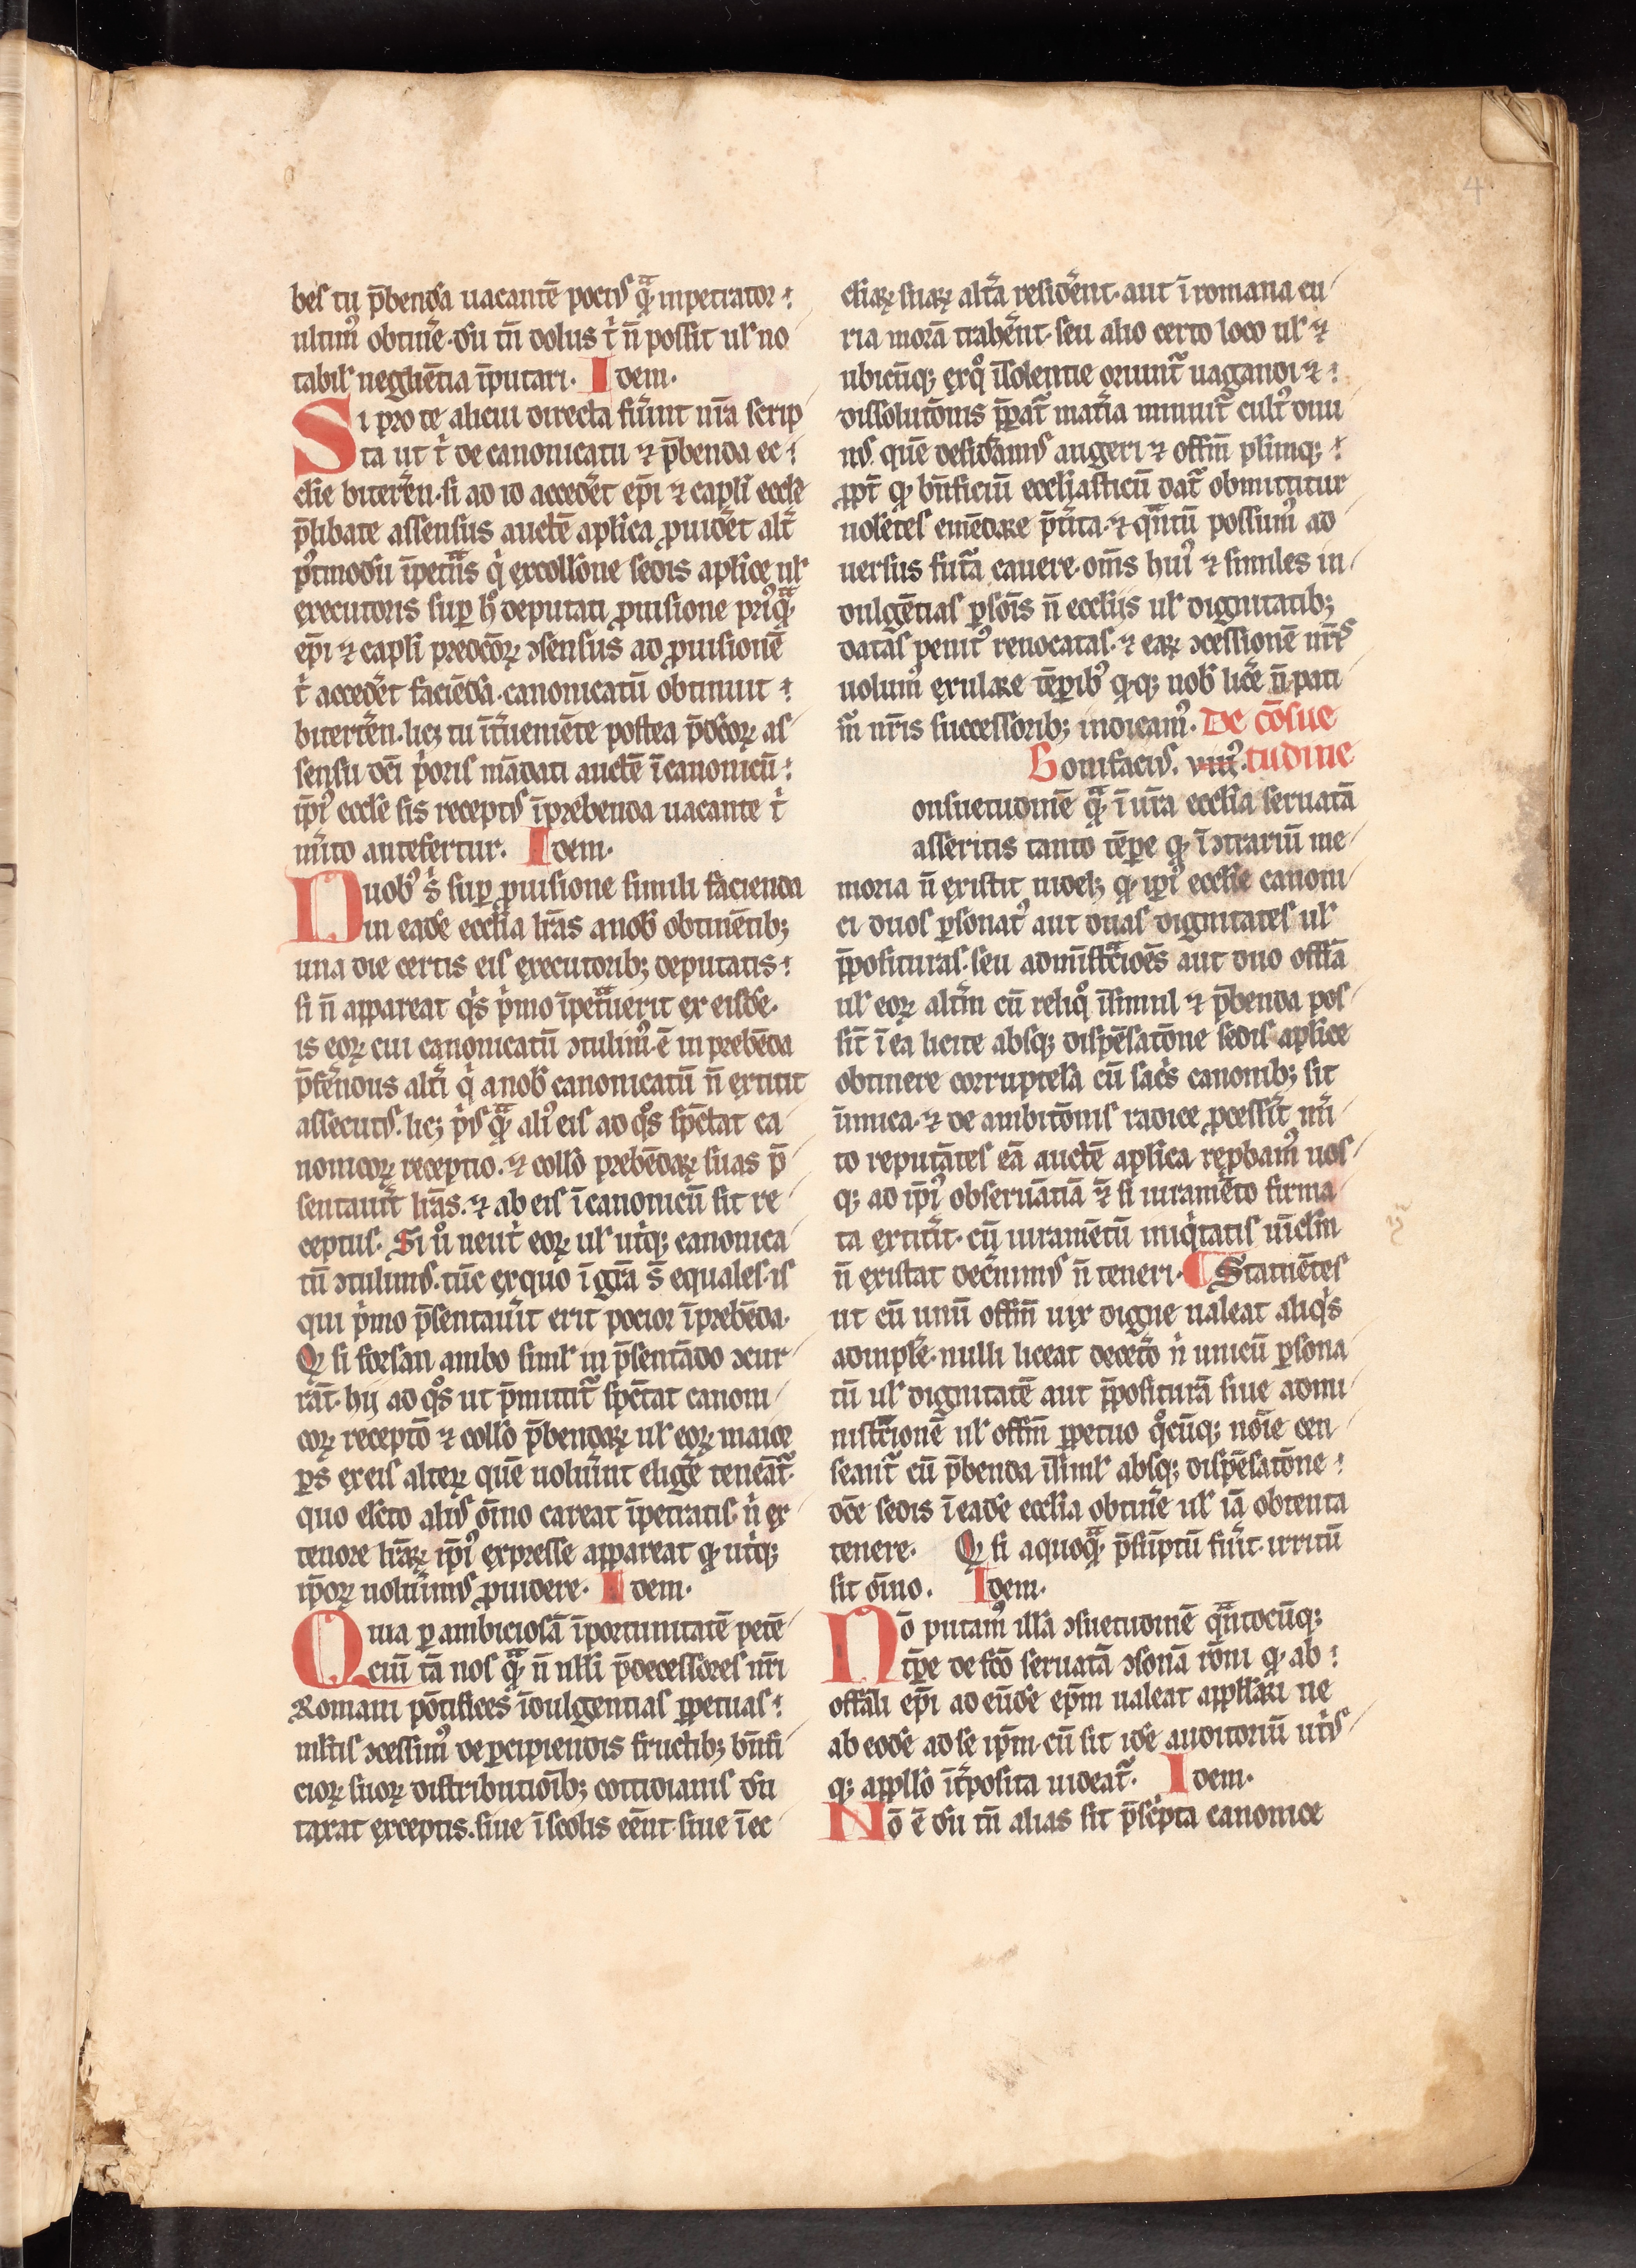 4
bes tu p̄benda uacantē pociꝰ qᷓ inpetrator
ultimꝰ obtinē̓ dū tn̄ dolus t̓ n̄ possit ul̓ no
tabil̓ negligētia īputari. Idem.
Si pro te alicui directa fuerīt nr̄a scrip
ta ut t̓ de canonicatu ⁊ p̄benda ec
cl̓ie biterren̄. si ad id acced̓et ep̄i ⁊ capl̓i eccl̓e
p̄libate assensus auctē apl̓ica ꝓuid̓et alt̓i
p̓tmodū īpetᷓns q̓ ex coll̓one sedis apl̓ice ul̓
executoris suꝑ h̊ deputati ꝓuisione priꝰqᷓ
ep̄i ⁊ capl̓i predc̄oꝝ ↄsensus ad ꝓuisionē
t̓ acced̓et faciēda. canonicatū obtinuit
biterrēn. lic̓ꝫ tu īt̓ueniēte postea p̄dc̄oꝝ as
sensu dc̄i p̓oris mādati auctē ī canonicū
ip̄iꝰ eccl̓e sis receptꝰ ī prebenda uacante t̓
m̓ito antefertur. Idem.
Duobꝰ s̓ suꝑ ꝓuisione simili facienda
in eadē eccl̓ia lr̄as a nob̓ obtinētibꝫ
una die certis eis executoribꝫ deputatis
si n̄ appareat q̓s p̓mo īpetᷓuerit ex eisdē.
is eoꝝ cui canonicatū ↄtulimꝰ ē in prebēda
p̄fer̄dus alt̓i q̓ a nob̓ canonicatū n̄ extitit
assecutꝰ. lic̓ꝫ p̓ꝰ qᷓ aliꝰ eis ad qͦs sp̄ctat ca
nonicoꝝ receptio. ⁊ coll̓o prebēdaꝝ suas p̄
sentau̓it lr̄as. ⁊ ab eis ī canonicū sit re
ceptus. Si uͦ neut̓i eoꝝ ul̓ ut̓iqꝫ canonica
tū ↄtulimꝰ. tūc ex quo ī gr̄a s̄t equales. is
qui p̓mo p̄sentau̓it erit pocior ī prebēda.
Qꝫ si forsan ambo simul̓ in p̄sentādo ↄcur
rāt. hij ad qͦs ut p̄mittit᷑ sp̄ctat canoni
coꝝ receptō ⁊ coll̓o p̄bendaꝝ ul̓ eoꝝ maior
ꝑs ex eis alteꝝ quē uolu̓int elig̓e teneāt᷑.
quo electo aliꝰ oīno careat īpetratis. n̓ ex
tenore lr̄aꝝ ip̄iꝰ expresse appareat qꝫ ut̓iqꝫ
ip̄oꝝ uolu̓imꝰ ꝓuidere. Idem.
Quia ꝑ ambiciosā īportunitatē petē
ciū tā nos qᷓ n̄ nl̓li p̄decessores nr̄i
Romani pōtifices īdulgentias ꝑpetuas
ml̓tis ↄcessimꝰ de ꝑcipiendis fructibꝫ bn̄fi
cioꝝ suoꝝ distributionībꝫ cottidianis dū
taxat exceptis. siue ī scolis eēnt. siue ī ec
cl̓iaꝝ suaꝝ alt̓a resid̓ent. aut ī romana cu
ria morā trah̓ent. seu alio certo loco ul̓ ⁊
ubicūqꝫ ex qͦ īsolentie oriunt᷑ uagandi ⁊
dissolutōnis p̄parat᷑ mat̓ia minuit᷑ cultꝰ diui
nꝰ. quē desid̓amꝰ augeri ⁊ offm̄ pl̓imqꝫ
ꝓpt̓ qꝫ bn̄ficiū eccl̓iasticū dat᷑ obmittitur
uolētes emēdare pt̓ita. ⁊ qᷓntū possumꝰ ad
uersus futᷓa cauere. om̄s huiꝰ ⁊ similes in
dulgētias ꝑsōis n̄ eccl̓ijs ul̓ dignitatibꝫ
datas penitꝰ reuocatas. ⁊ eaꝝ ↄcessionē nr̄is
uolumꝰ exulare tēꝑibꝰ qꝫqꝫ nob̓ lic̓e n̄ pati
m᷑ nr̄is successoribꝫ indicamꝰ. De cōsue
Bonifaciꝰ. viiiꝰ. tudine
onsuetudinē qᷓ ī ur̄a eccl̓ia seruatā
asseritis tanto tēꝑe qꝫ ī ↄtrariū me
moria n̄ existit uidel̓ꝫ qꝫ ip̄iꝰ eccl̓ie canoni
ci duos ꝑsonatꝰ aut duas dignitates ul̓
p̄posituras. seu admīstᷓcōes aut duo offīa
ul̓ eoꝝ alt̓m cū reliqͦ īsimul ⁊ p̄benda pos
sīt ī ea licite absqꝫ dispēsatōne sedis apl̓ice
obtinere corruptela cū sac̓s canonibꝫ sit
īimica. ⁊ de ambitōnis radice ꝓcess̓it m̓i
to reputātes eā auctē apl̓ica rep̓bamꝰ uos
qꝫ ad ip̄iꝰ obseruātiā ⁊̄ si iuramēto firma
ta extit̓it. cū iuramētū iniq̓tatis uīcl̓m
n̄ existat dec̓nimꝰ n̄ teneri. ¶ Statuētes
ut cū unū offm̄ uix digne ualeat aliq̓s
adimpl̓e. nulli liceat dec̓eto n̓ unicū ꝑsona
tū ul̓ dignitatē aut p̄positurā siue admi
nistᷓcionē ul̓ offm̄ ꝑpetuo qͦcūqꝫ noīe cen
seant᷑ cū p̄benda īsimul̓ absqꝫ dispēsatōne
dc̄e sedis ī eadē eccl̓ia obtin̓e ul̓ iā obtenta
tenere. Qꝫ si a quoqᷓ p̄sūptū fu̓it. irritū
sit oīno. Idem.
Nō putamꝰ illā ↄsuetudinē qᷓntocūqꝫ
tp̄e de fc̄o seruatā ↄsonā rōni qꝫ ab
offīali ep̄i ad eūdē ep̄m ualeat appll̓ari ne
ab eodē ad se ip̄m. cū sit idē auditoriū ut̓iꝰ
qꝫ appll̓o īt̓posita uideat᷑. Idem.
Nō ē dū tn̄ alias sit p̄sc̓pta canonice